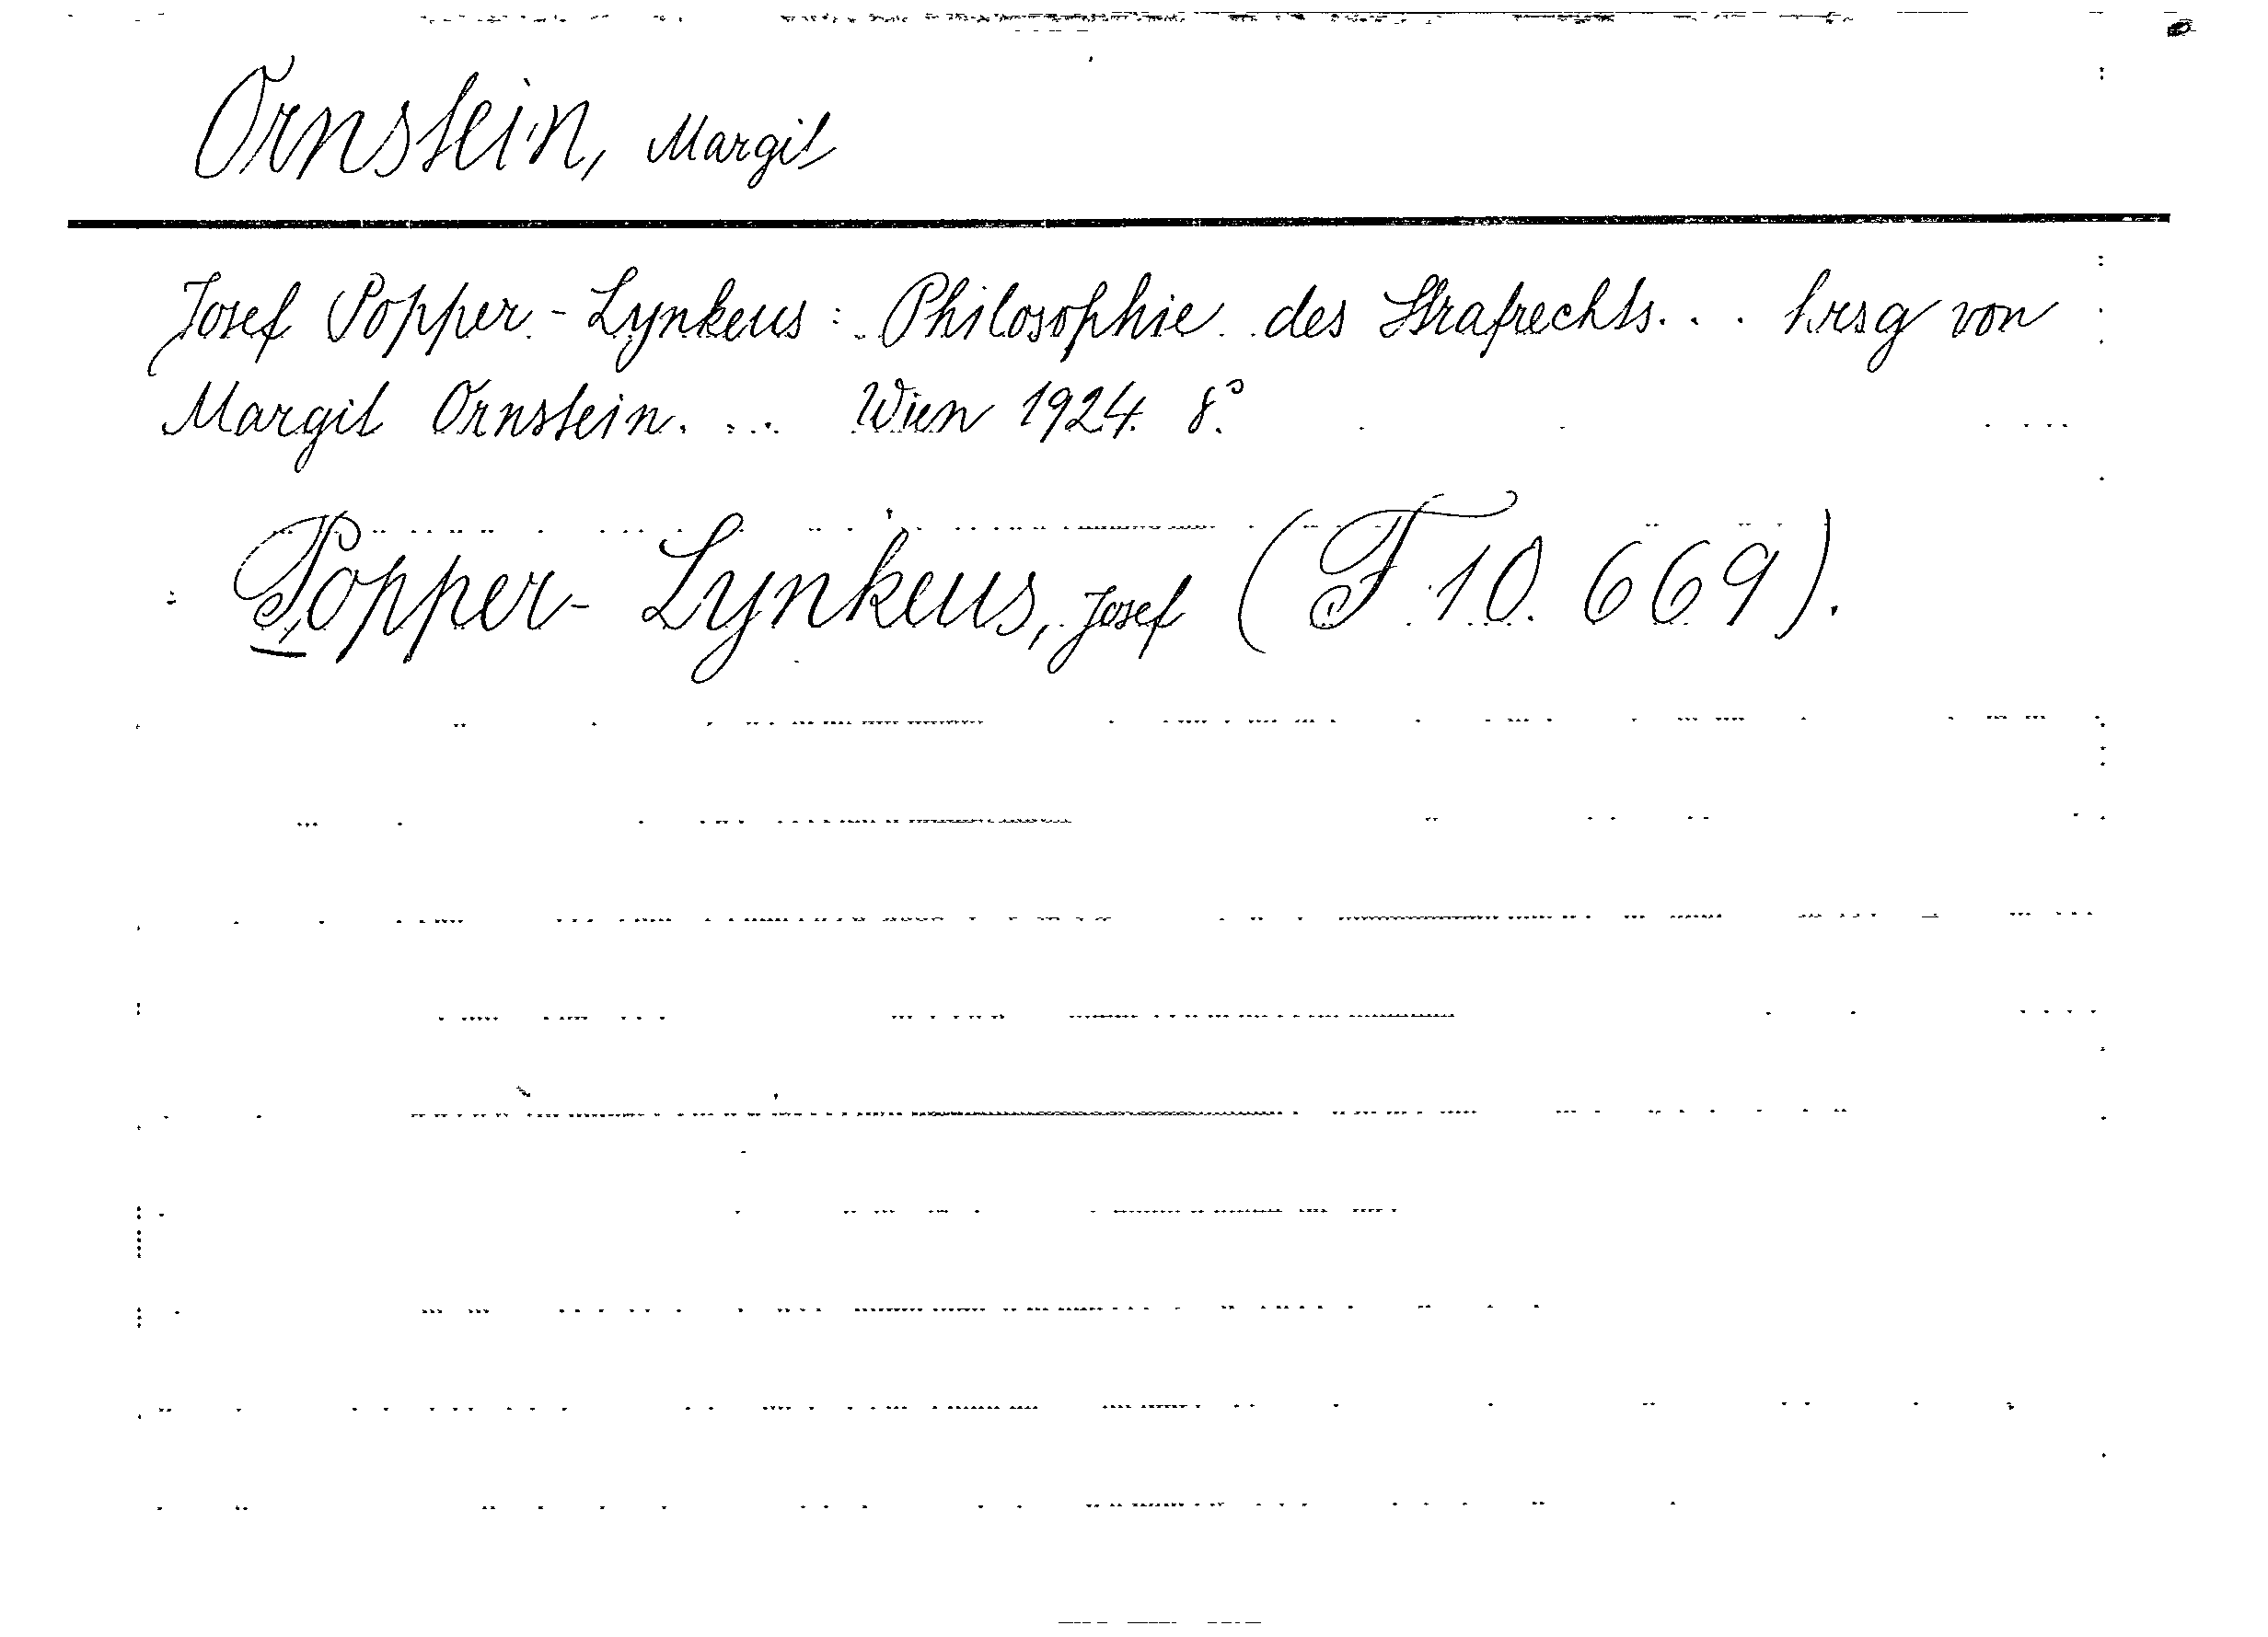 Ornstein, Margit
Josef Popper-Lynkeus: Philosophie des Strafrechts... hrsg von
Margit Ornstein. ... Wien 1924. 8°.
Popper-Lynkeus, Josef (F 10. 669).